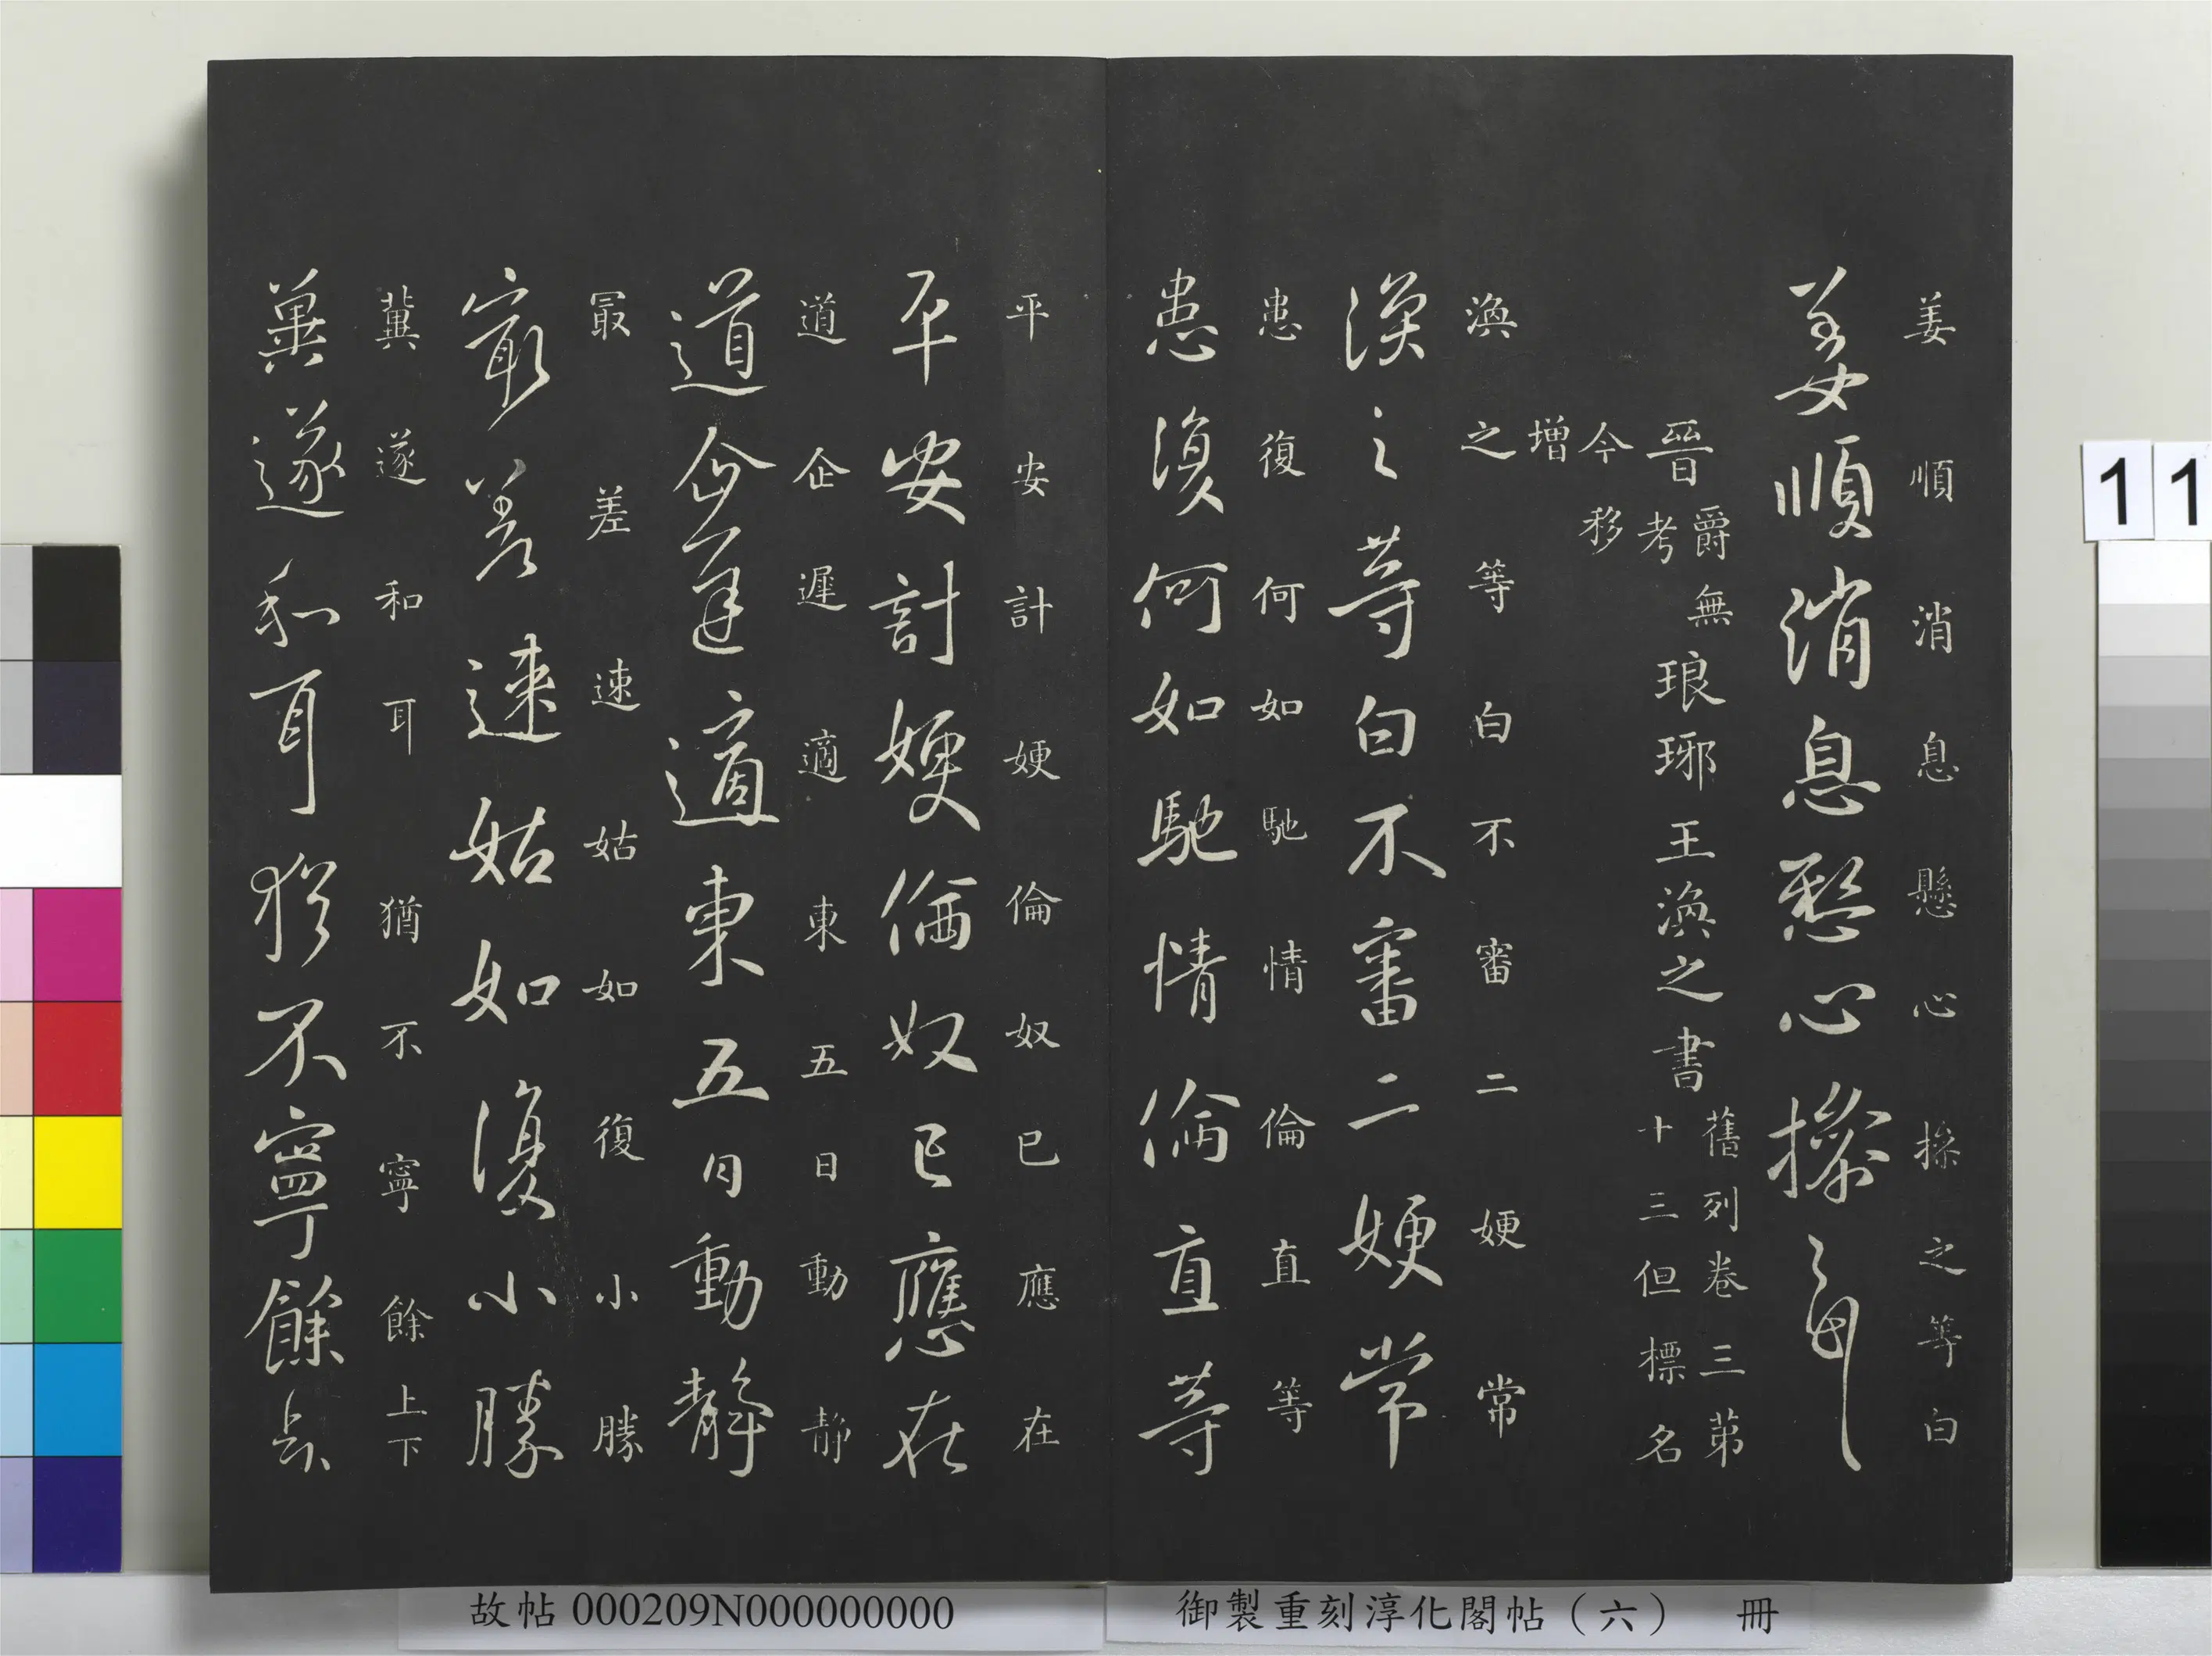 姜順消息懸心操之等白
姜順消息懸心操之等白
晉
爵無
考
琅琊王渙之書
舊列卷三第
十三但標名
今移
增
渙之等白不審二㛐常
渙之等白不審二㛐常
患復何如馳情倫直等
患復何如馳情倫直等
平安計㛐倫奴已應在
平安計㛐倫奴已應在
道企遲適東五日動靜
道企遲適東五日動靜
最差速姑如復小勝
最差速姑如復小勝
冀遂和耳猶不寧餘上下
冀遂和耳猶不寧餘上下
御製重刻淳化閣帖（六） 冊
故帖 000209N000000000
11